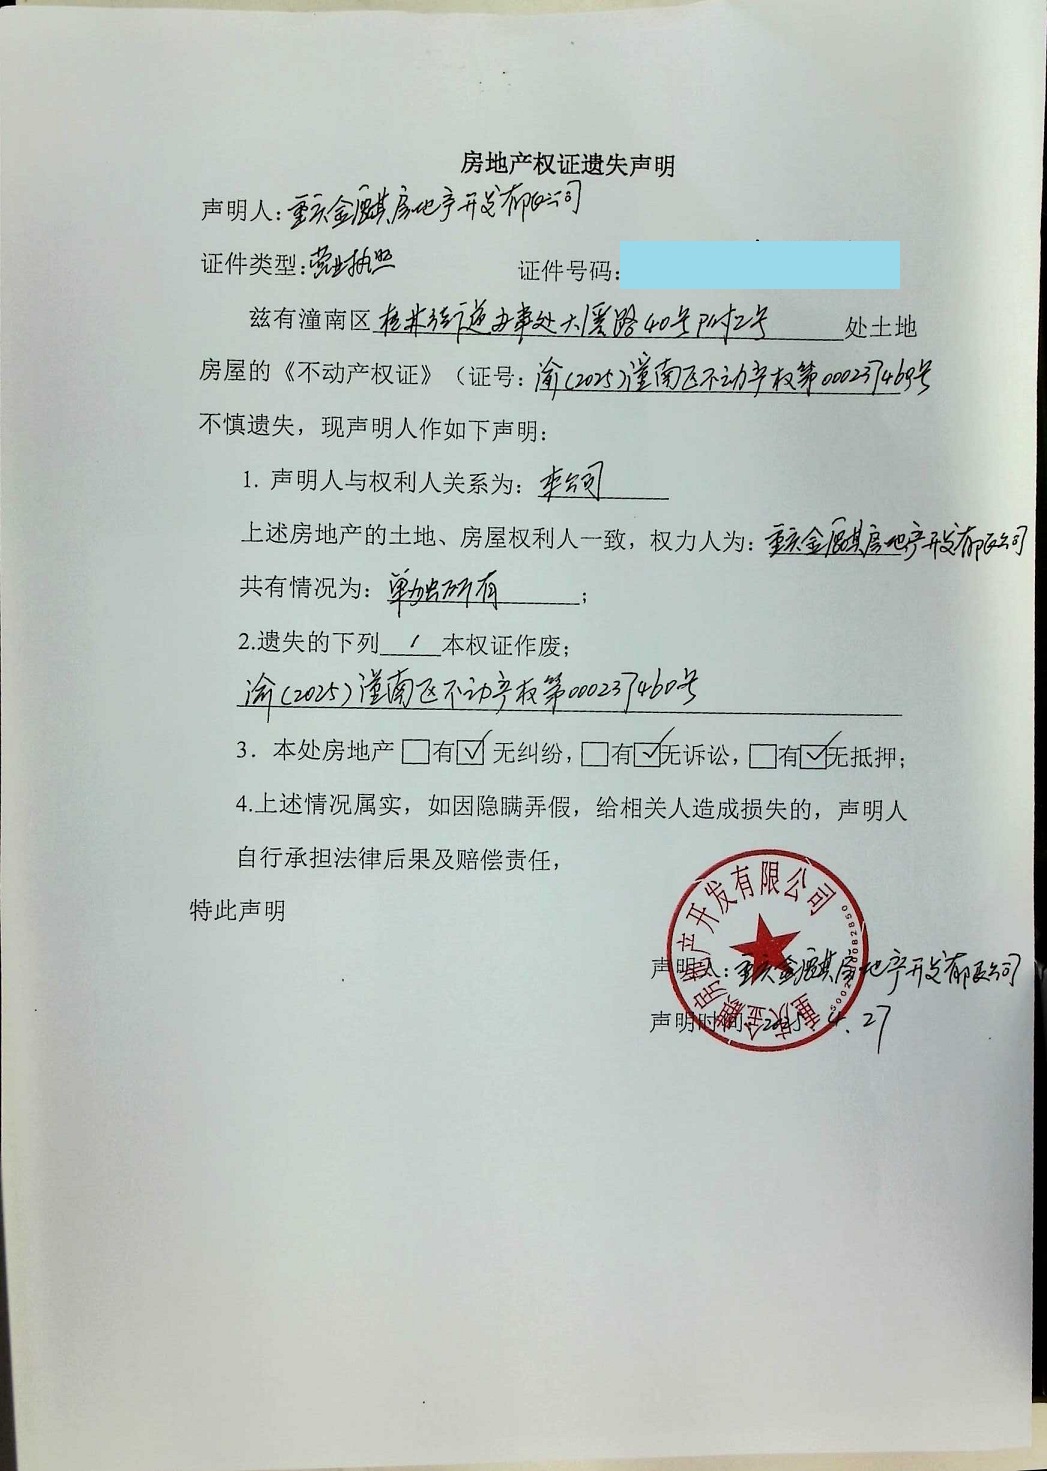 房地产权证遗失声明
声明人:重庆金麒麟房地产开发有限公司
证件类型:营业执照 证件号码:
兹有潼南区桂林街道办事处大溪路40号附2号处土地
房屋的《不动产权证》（证号:渝(2025)潼南区不动产权第000237460号
不慎遗失，现声明人作如下声明:
1. 声明人与权利人关系为:本公司
上述房地产的土地、房屋权利人一致，权力人为:重庆金麒麟房地产开发有限公司
共有情况为:单独所有;
2.遗失的下列1本权证作废;
渝(2025)潼南区不动产权第000237460号
3. 本处房地产□有☑无纠纷,□有☑无诉讼,□有☑无抵押;
4.上述情况属实，如因隐瞒弄假，给相关人造成损失的，声明人
自行承担法律后果及赔偿责任,
特此声明
声明人:重庆金麒麟房地产开发有限公司
声明时间:2025.4.27